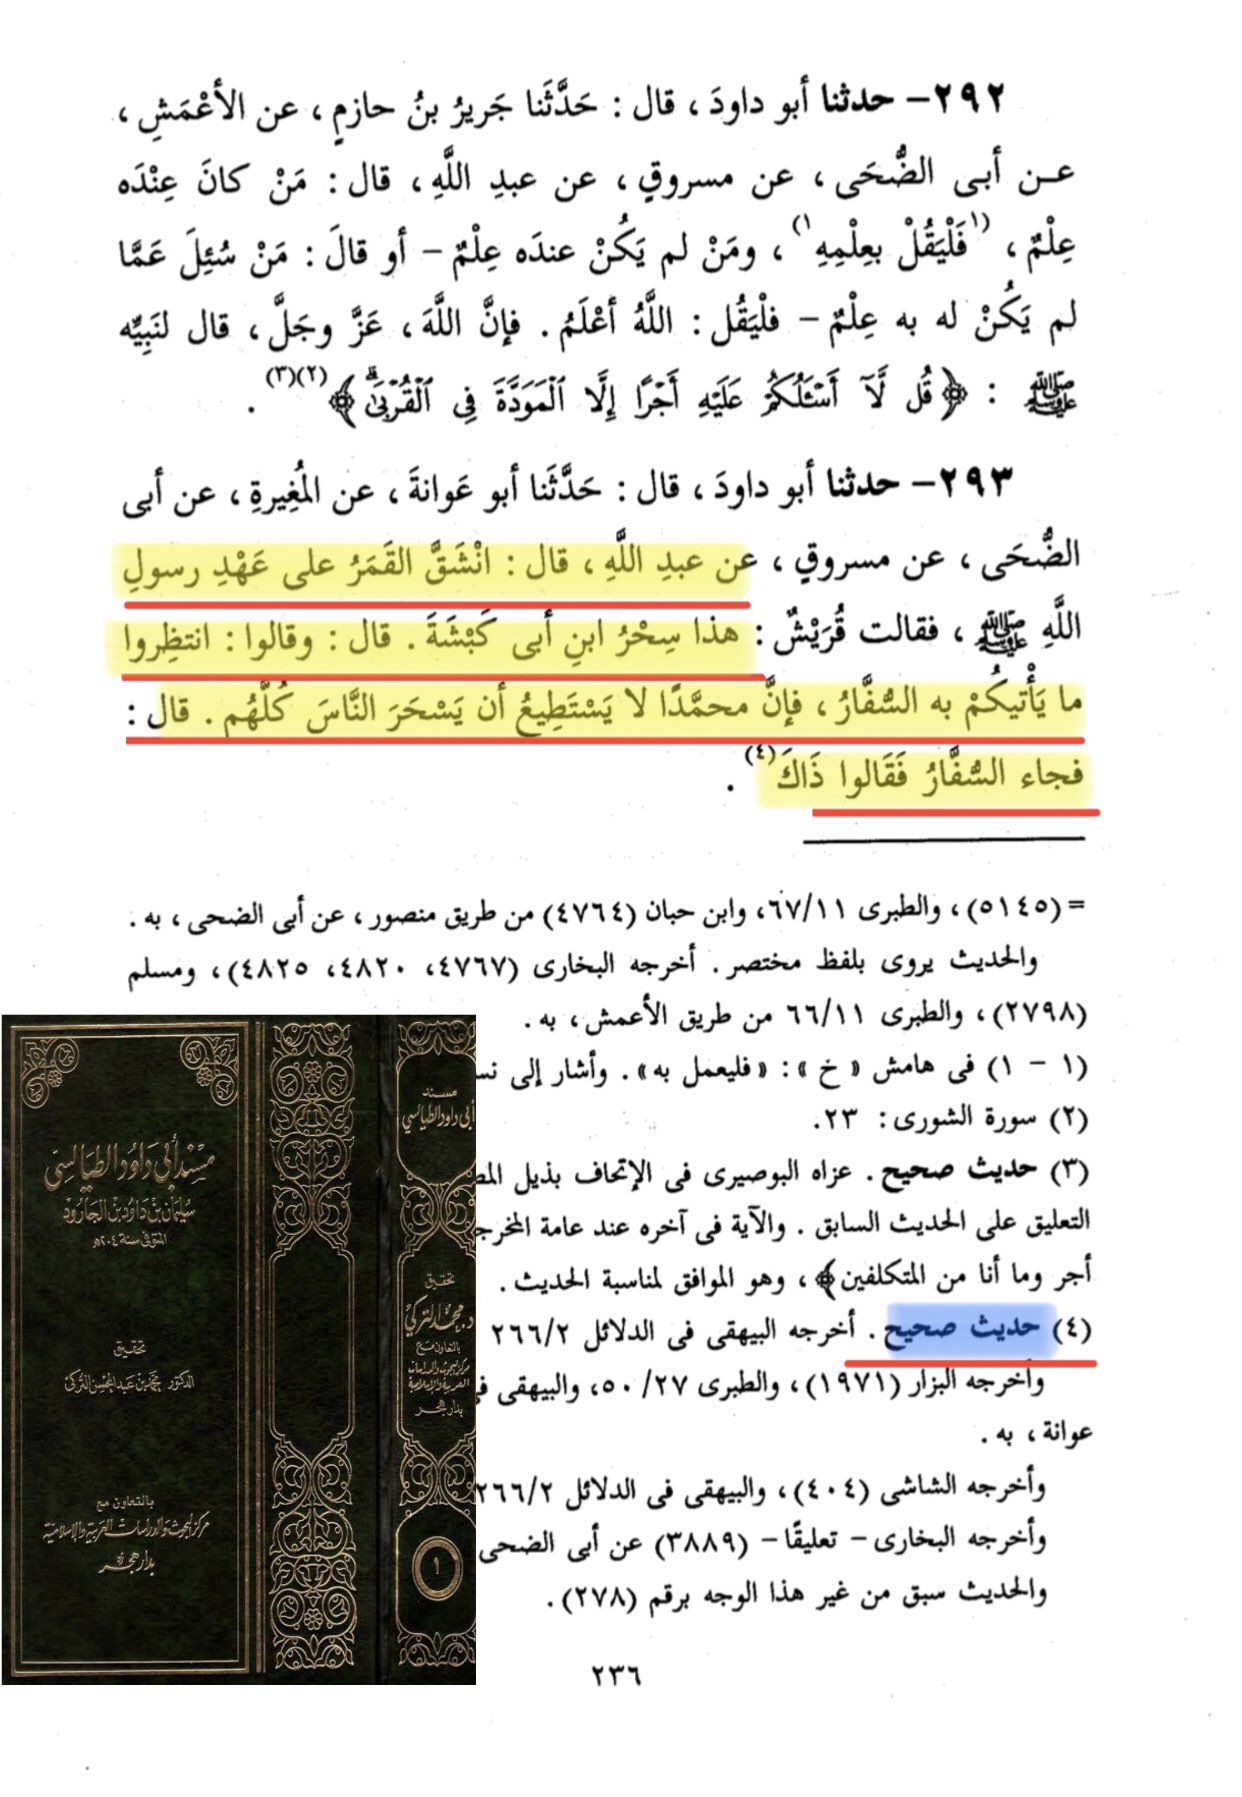 ٢٩٢- حدثنا أبو داودَ ، قال : حَدَّثَنا جَريرُ بنُ حازمٍ ، عن الأعْمَشِ ،
عـن أبى الضُّحَى ، عن مسروقٍ ، عن عبدِ اللَّهِ ، قال : مَنْ كانَ عِنْدَه
عِلْمٌ ، (١فَلْيَقُلْ بعِلْمِهِ١) ، ومَنْ لم يَكُنْ عندَه عِلْمٌ – أو قالَ : مَنْ سُئِلَ عَمَّا
لم يَكُنْ له به عِلْمٌ – فلْيَقُل : اللَّهُ أعْلَمُ . فإنَّ اللَّهَ ، عَزَّ وجَلَّ ، قال لنَبِيِّه
ﷺ : ﴿قُل لَّآ أَسْـَٔلُكُمْ عَلَيْهِ أَجْرًا إِلَّا ٱلْمَوَدَّةَ فِى ٱلْقُرْبَىٰۗ﴾(٢)(٣) .
٢٩٣- حدثنا أبو داودَ ، قال : حَدَّثَنا أبو عَوانةَ ، عن المُغِيرةِ ، عن أبى
الضُّحَى ، عن مسروقٍ ، عن عبدِ اللَّهِ ، قال : انْشَقَّ القَمَرُ على عَهْدِ رسولِ
اللَّهِ ﷺ ، فقالت قُرَيْشٌ : هذا سِحْرُ ابنِ أبى كَبْشَةَ . قال : وقالوا : انتظِروا
ما يَأْتيكُمْ به السُّفَّارُ ، فإنَّ محمَّدًا لا يَسْتَطِيعُ أن يَسْحَرَ النَّاسَ كُلَّهُم . قال :
فجاء السُّفَّارُ فَقَالوا ذَاكَ(٤) .
= (٥١٤٥) ، والطبرى ٦٧/١١، وابن حبان (٤٧٦٤) من طريق منصور ، عن أبى الضحى ، به .
والحديث يروى بلفظ مختصر . أخرجه البخارى (٤٧٦٧، ٤٨٢٠، ٤٨٢٥) ، ومسلم
(٢٧٩٨) ، والطبرى ٦٦/١١ من طريق الأعمش ، به .
(١ – ١) فى هامش « خ » : « فليعمل به » . وأشار إلى
(٢) سورة الشورى : ٢٣.
(٣) حديث صحيح . عزاه البوصيرى فى الإتحاف بذيل
التعليق على الحديث السابق . والآية فى آخره عند عامة
أجر وما أنا من المتكلفين﴾ ، وهو الموافق لمناسبة الحديث .
(٤) حديث صحيح . أخرجه البيهقى فى الدلائل ٢٦٦/٢
وأخرجه البزار (١٩٧١) ، والطبرى ٢٧/ ٥٠، والبيهقى
عوانة ، به .
وأخرجه الشاشى (٤٠٤) ، والبيهقى فى الدلائل ٢٦٦/٢
وأخرجه البخارى – تعليقًا – (٣٨٨٩) عن أبى الضحى
والحديث سبق من غير هذا الوجه برقم (٢٧٨) .
٢٣٦
مسند أبي داود الطيالسي
سليمان بن داود بن الجارود
المتوفى سنة ٢٠٤هـ
تحقيق
الدكتور محمد بن عبد المحسن التركي
بالتعاون مع
مركز البحوث والدراسات العربية والإسلامية
بدار هجر
مسند
أبي داود الطيالسي
تحقيق
د. محمد التركي
بالتعاون مع
مركز البحوث والدراسات
العربية والإسلامية
بدار هجر
١